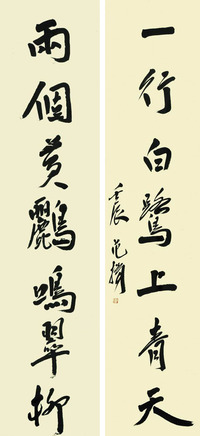 一行白鷺上青天
壬辰
兩個黃鸝鳴翠柳